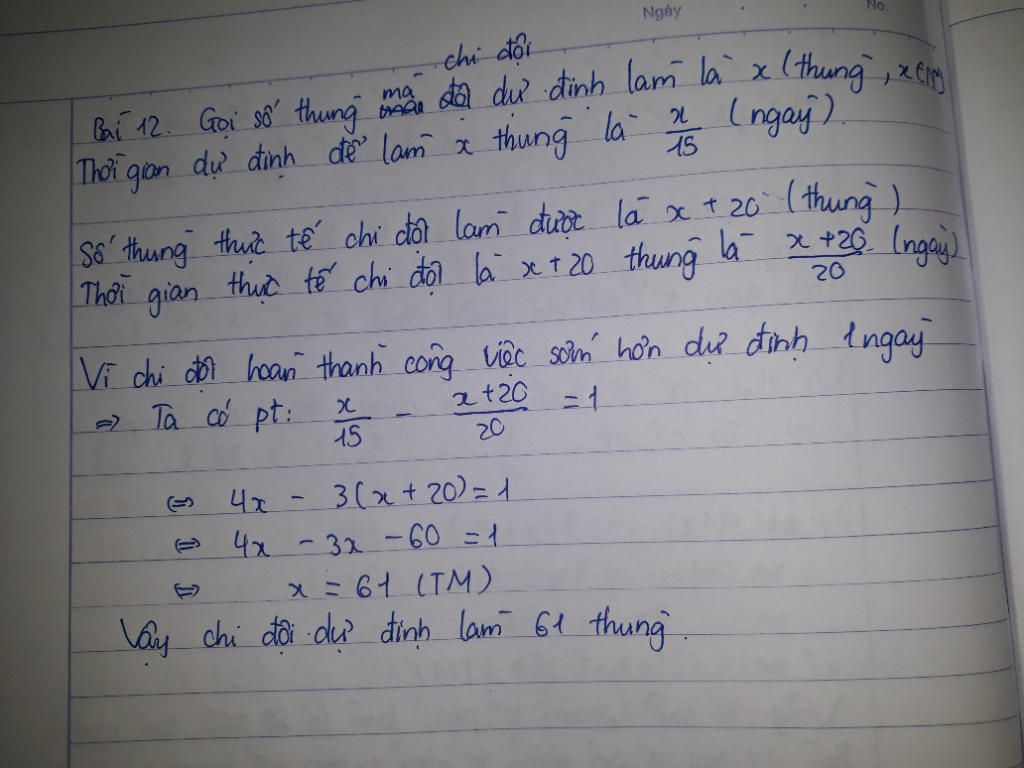 Ngày
No.
chi đội
Bài 12. Gọi số thùng mà đội dự định làm là x (thùng, x ∈ N*)
Thời gian dự định để làm x thùng là x/15 (ngày).
Số thùng thực tế chi đội làm được là x + 20 (thùng)
Thời gian thực tế chi đội là x + 20 thùng là x + 20/20 (ngày)
Vì chi đội hoàn thành công việc sớm hơn dự định 1 ngày
⇒ Ta có pt: x/15 - x + 20/20 = 1
⇔ 4x - 3(x + 20) = 1
⇔ 4x - 3x - 60 = 1
⇔ x = 61 (TM)
Vậy chi đội dự định làm 61 thùng.